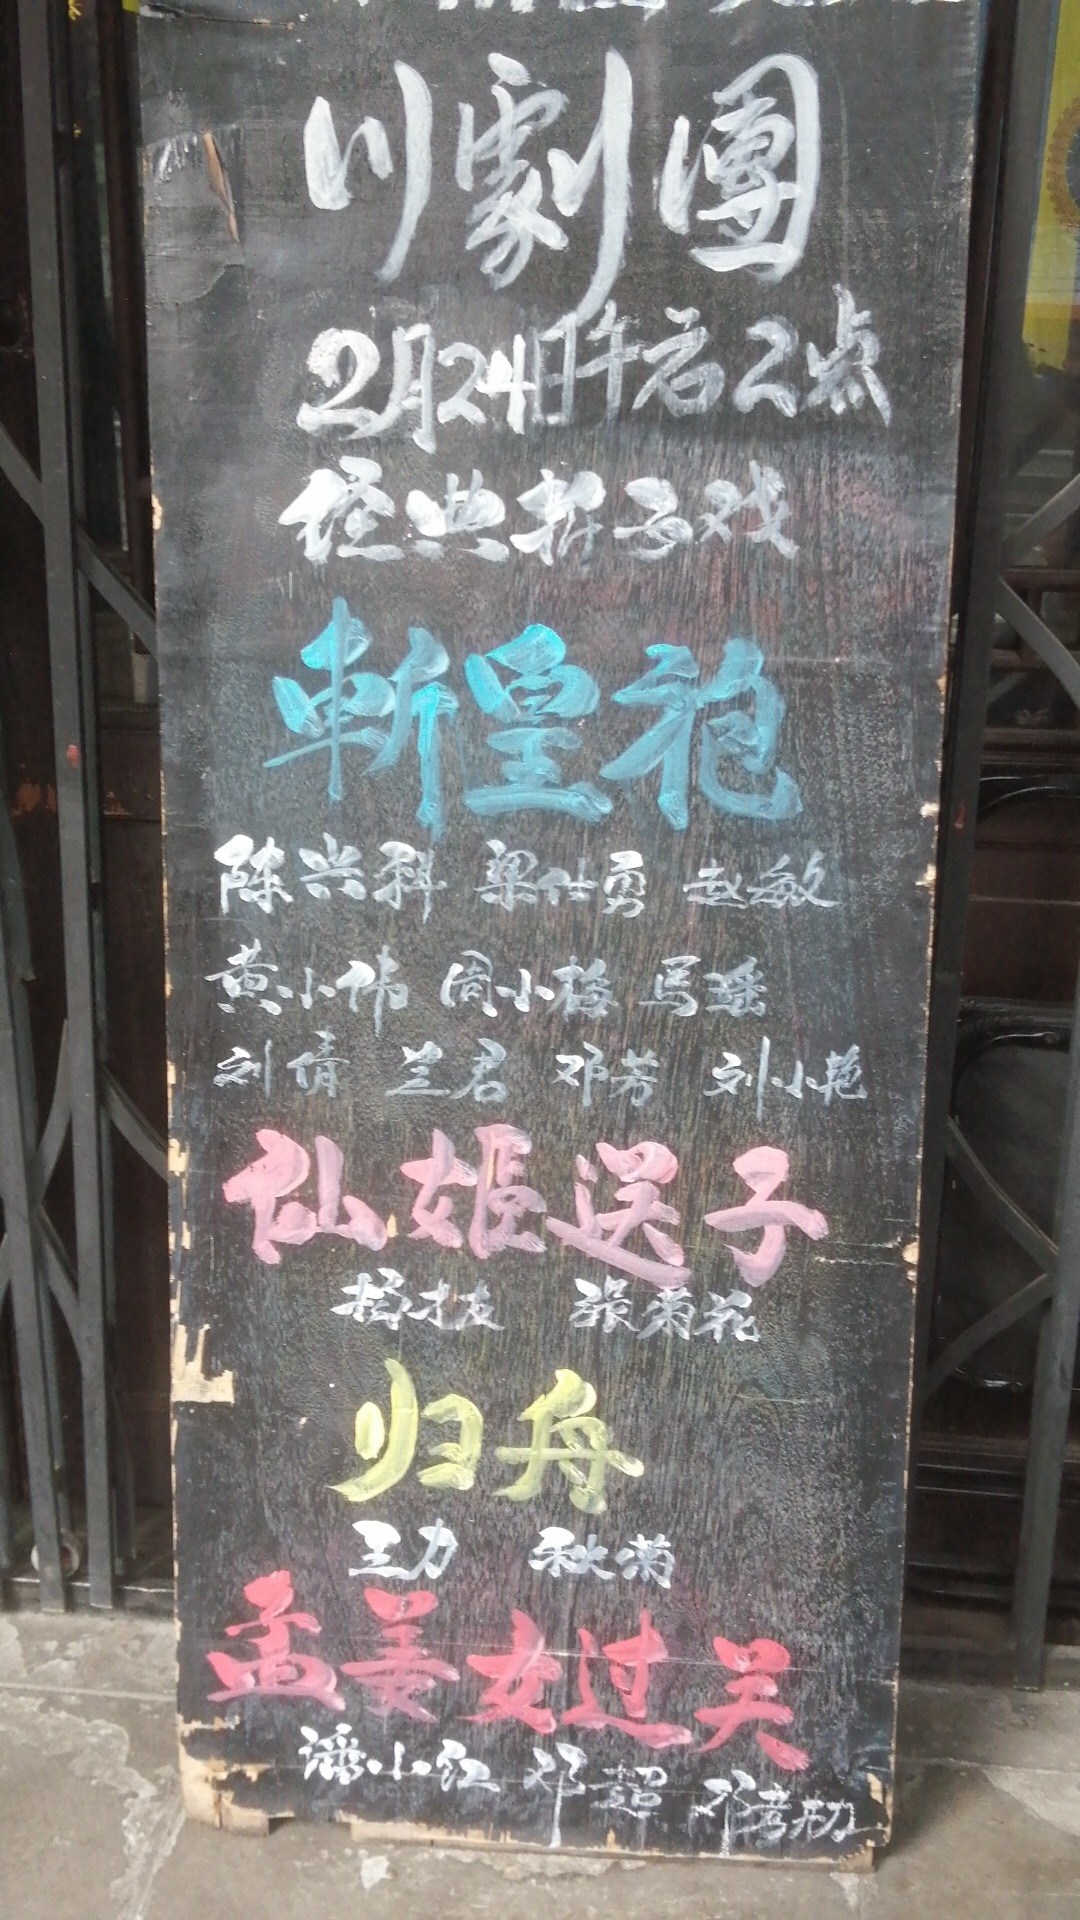 川劇團
2月24日午后2点
经典折子戏
斬皇袍
陈兴科 梁仕勇 赵敏
黄小伟 周小梅 马瑶
刘倩 兰君 邓芳 刘小艳
仙姬送子
杨才友 張菊花
归舟
王力 秋菊
孟姜女过关
潘小红 邓超 邓彦劢